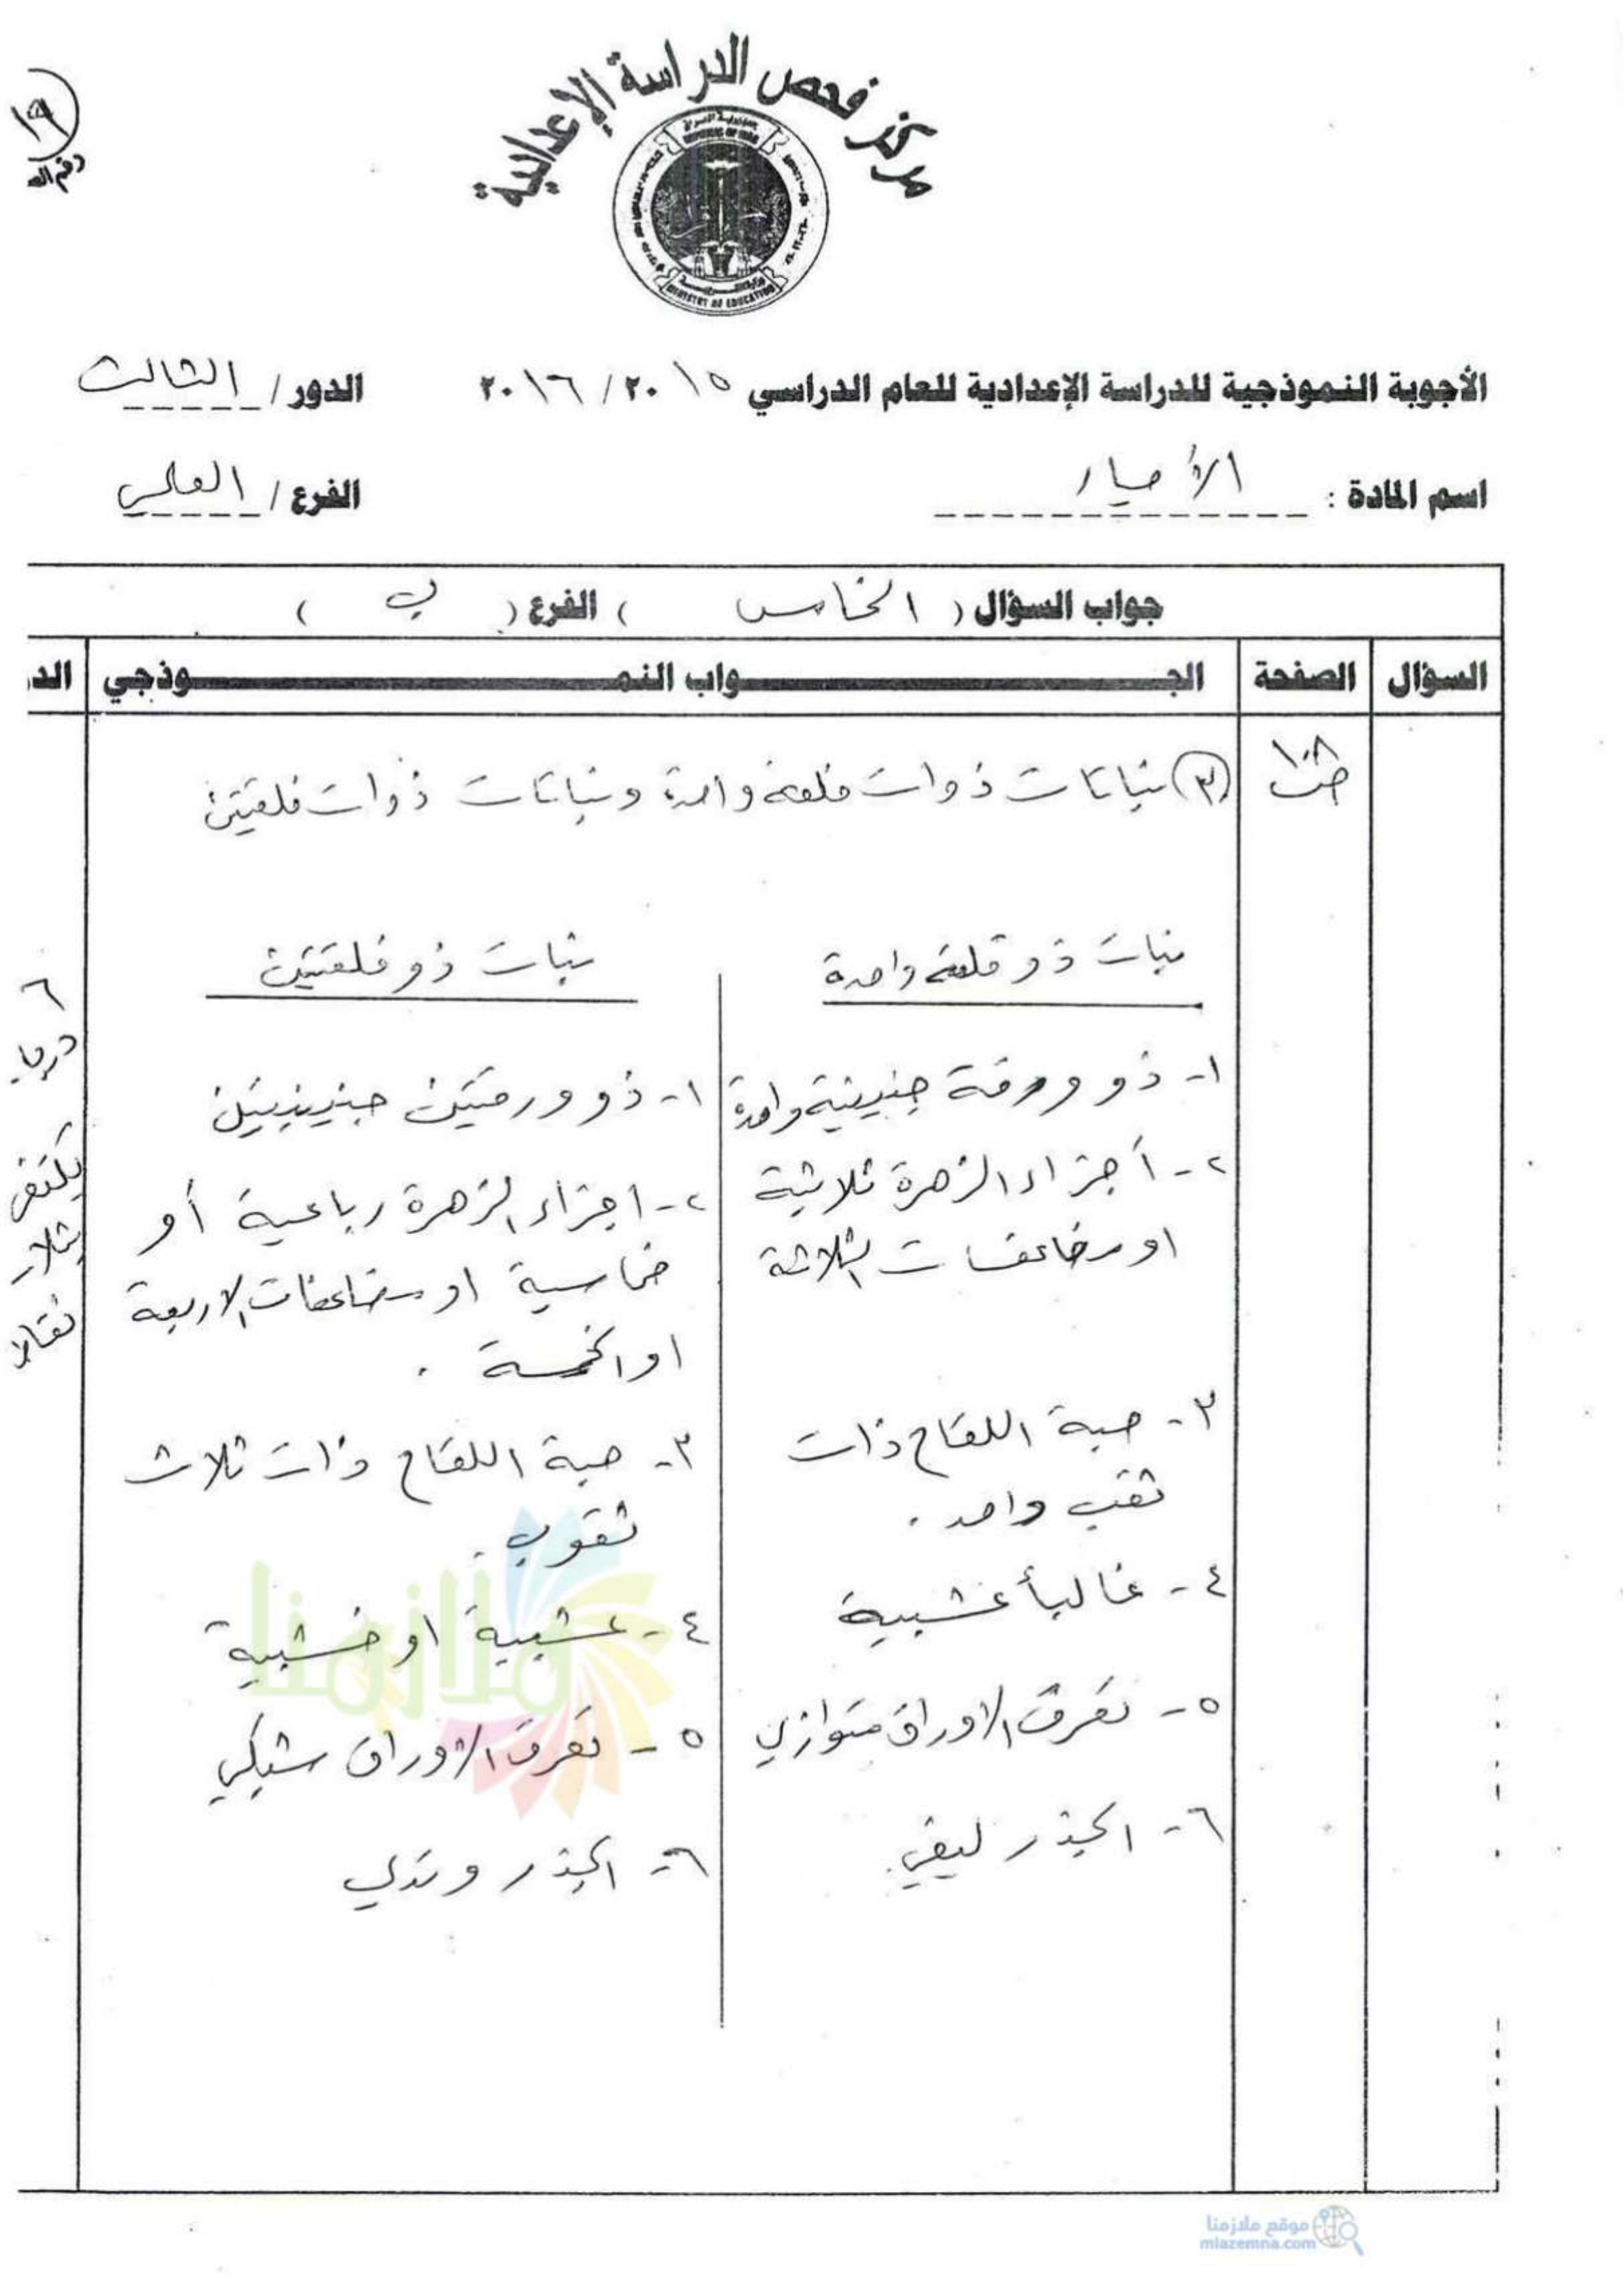 مركز فحص الدراسة الإعدادية
REPUBLIC OF IRAQ
MINISTRY OF EDUCATION
١٩
الأجوبة النموذجية للدراسة الإعدادية للعام الدراسي ٢٠١٥ / ٢٠١٦ الدور / الثالث
اسم المادة : الأحياء الفرع / العلمي
جواب السؤال ( الخامس ) الفرع ( ب )
السؤال الصفحة الجـــواب النمـــوذجي الد
(٣) نباتات ذوات فلقة واحدة ونباتات ذوات فلقتين
نبات ذو فلقة واحدة
١- ذو ورقة جنينية واحدة
٢- أجزاء الزهرة ثلاثية
او مضاعفات الثلاثة
٣- حبة اللقاح ذات
ثقب واحد .
٤- غالباً عشبية
٥- تعرق الاوراق متوازي
٦- الجذر ليفي .
نبات ذو فلقتين
١- ذو ورقتين جنينيتين
٢- اجزاء الزهرة رباعية أو
خماسية او مضاعفات الاربعة
او الخمسة .
٣- حبة اللقاح ذات ثلاث
ثقوب .
٤- عشبية او خشبية
٥- تعرق الاوراق شبكي
٦- الجذر وتدي
٦
ملازمنا
موقع ملازمنا
mlazemna.com